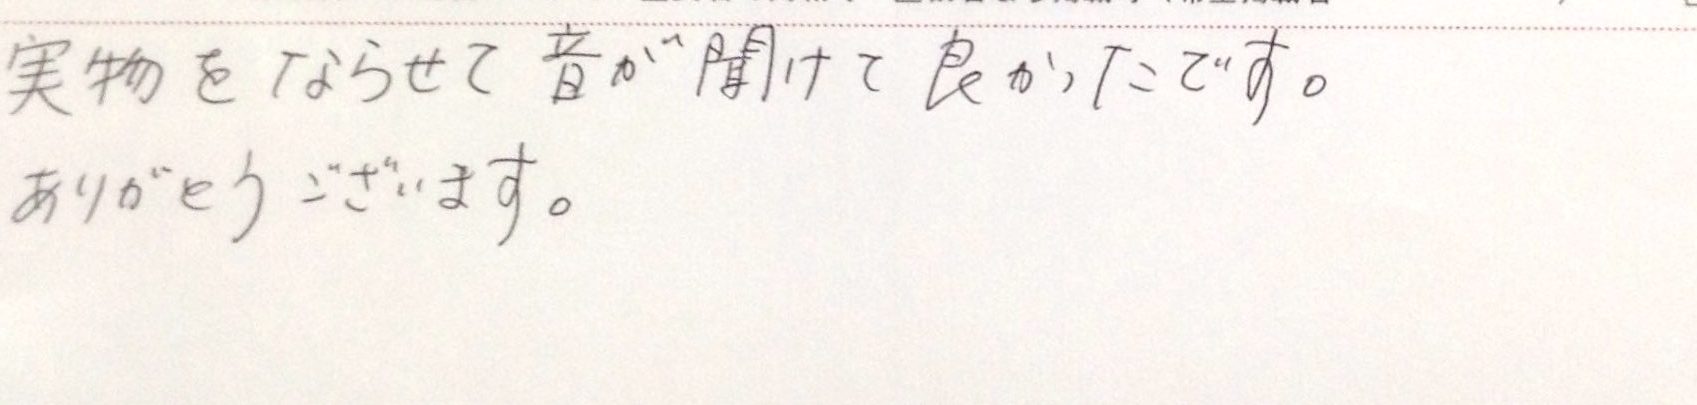 実物をならせて音が聞けて良かったです。
ありがとうございます。